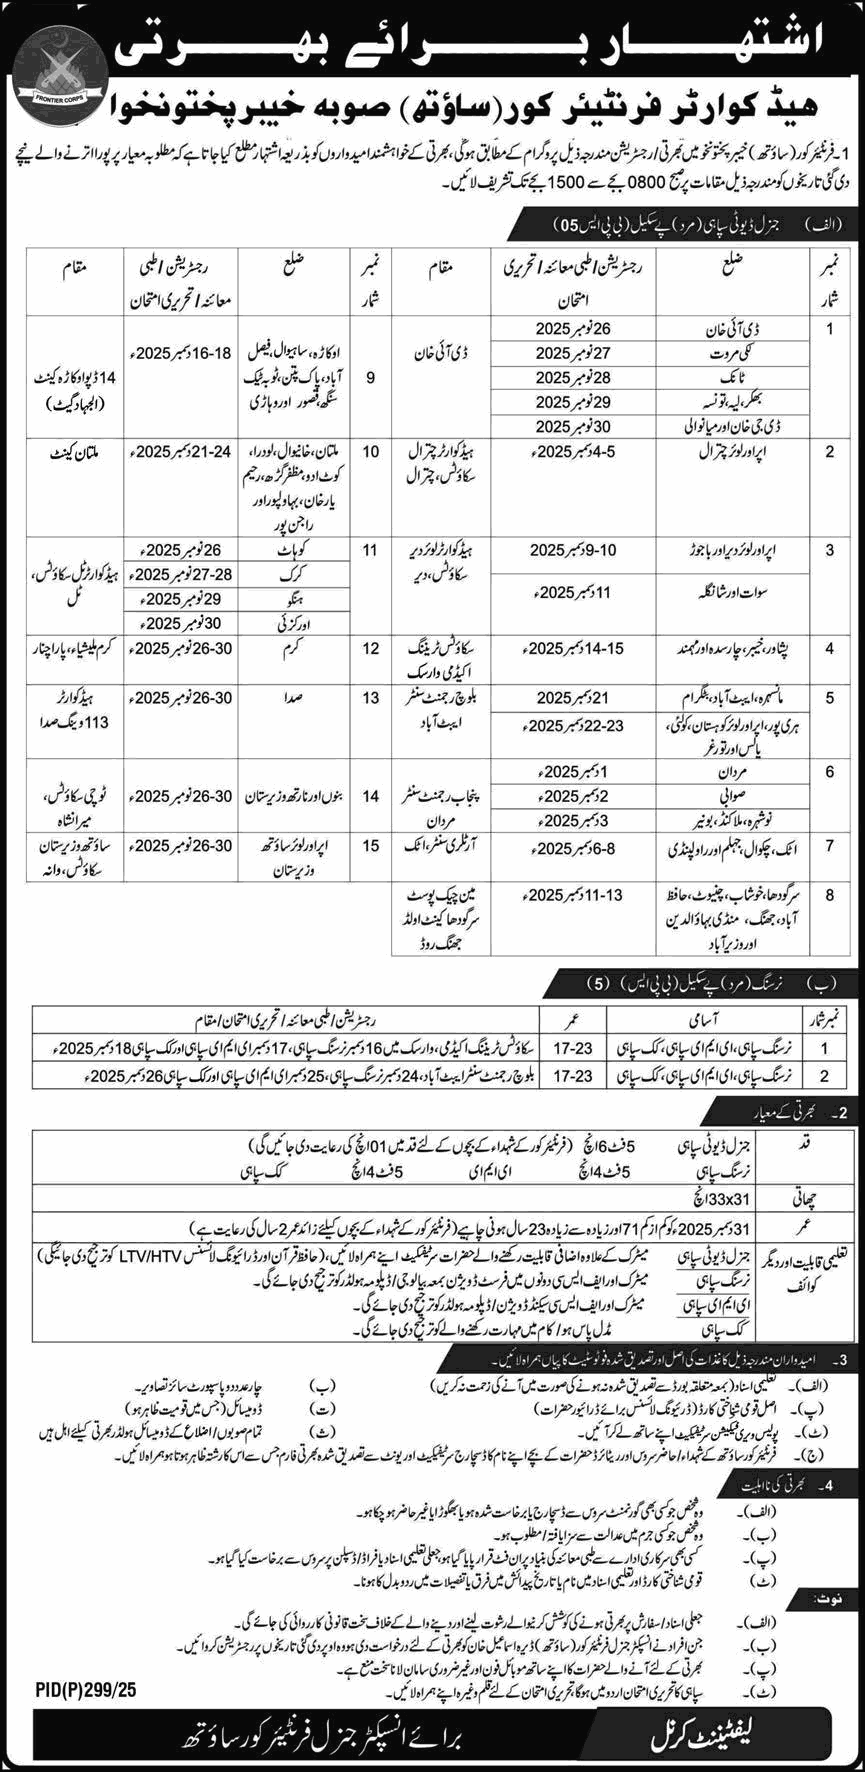 اشتہار برائے بھرتی
FRONTIER CORPS
ہیڈ کوارٹر فرنٹیئر کور (ساؤتھ) صوبہ خیبر پختونخوا
1۔ فرنٹیئر کور (ساؤتھ) خیبر پختونخوا میں بھرتی/رجسٹریشن مندرجہ ذیل پروگرام کے مطابق ہوگی، بھرتی کے خواہشمند امیدواروں کو بذریعہ اشتہار مطلع کیا جاتا ہے کہ مطلوبہ معیار پر پورا اترنے والے نیچے
دی گئی تاریخوں کو مندرجہ ذیل مقامات پر صبح 0800 بجے سے 1500 بجے تک تشریف لائیں۔
(الف) جنرل ڈیوٹی سپاہی (مرد) پے سکیل (بی پی ایس 05)
نمبر شمار ضلع رجسٹریشن/طبی معائنہ/تحریری امتحان مقام
1 ڈی آئی خان 26 نومبر 2025 ڈی آئی خان
لکی مروت 27 نومبر 2025
ٹانک 28 نومبر 2025
بھکر، لیہ، تونسہ 29 نومبر 2025
ڈی جی خان اور میانوالی 30 نومبر 2025
2 اپر اور لوئر چترال 4-5 دسمبر 2025ء ہیڈ کوارٹر چترال سکاؤٹس، چترال
3 اپر اور لوئر دیر اور باجوڑ 9-10 دسمبر 2025 ہیڈ کوارٹر لوئر دیر سکاؤٹس، دیر
سوات اور شانگلہ 11 دسمبر 2025ء
4 پشاور، خیبر، چارسدہ اور مہمند 14-15 دسمبر 2025ء سکاؤٹس ٹریننگ اکیڈمی وارسک
5 مانسہرہ، ایبٹ آباد، بٹگرام 21 دسمبر 2025 بلوچ رجمنٹ سنٹر ایبٹ آباد
ہری پور، اپر اور لوئر کوہستان، کولئی، پالس اور تورغر 22-23 دسمبر 2025ء
6 مردان 1 دسمبر 2025ء پنجاب رجمنٹ سنٹر مردان
صوابی 2 دسمبر 2025ء
نوشہرہ، ملاکنڈ، بونیر 3 دسمبر 2025ء
7 اٹک، چکوال، جہلم اور راولپنڈی 6-8 دسمبر 2025ء آرٹلری سنٹر، اٹک
8 سرگودھا، خوشاب، چنیوٹ، حافظ آباد، جھنگ، منڈی بہاؤالدین اور وزیر آباد 11-13 دسمبر 2025ء مین چیک پوسٹ سرگودھا کینٹ اولڈ جھنگ روڈ
نمبر شمار ضلع رجسٹریشن/طبی معائنہ/تحریری امتحان مقام
9 اوکاڑہ، ساہیوال، فیصل آباد، پاک پتن، ٹوبہ ٹیک سنگھ، قصور اور وہاڑی 16-18 دسمبر 2025ء 14 ڈیو اوکاڑہ کینٹ (الجہاد گیٹ)
10 ملتان، خانیوال، لودراں، کوٹ ادو، مظفر گڑھ، رحیم یار خان، بہاولپور اور راجن پور 21-24 دسمبر 2025ء ملتان کینٹ
11 کوہاٹ 26 نومبر 2025ء ہیڈ کوارٹر ٹل سکاؤٹس، ٹل
کرک 27-28 نومبر 2025ء
ہنگو 29 نومبر 2025ء
اورکزئی 30 نومبر 2025ء
12 کرم 26-30 نومبر 2025ء کرم ملیشیاء، پاراچنار
13 صدا 26-30 نومبر 2025ء ہیڈ کوارٹر 113 ونگ صدا
14 بنوں اور نارتھ وزیرستان 26-30 نومبر 2025ء ٹوچی سکاؤٹس، میرانشاہ
15 اپر اور لوئر ساؤتھ وزیرستان 26-30 نومبر 2025ء ساؤتھ وزیرستان سکاؤٹس، وانہ
(ب) نرسنگ (مرد) پے سکیل (بی پی ایس) (5)
نمبر شمار آسامی عمر رجسٹریشن/طبی معائنہ/تحریری امتحان/مقام
1 نرسنگ سپاہی، ای ایم ای سپاہی، کک سپاہی 17-23 سکاؤٹس ٹریننگ اکیڈمی، وارسک میں 16 دسمبر نرسنگ سپاہی، 17 دسمبر ای ایم ای سپاہی اور کک سپاہی 18 دسمبر 2025ء
2 نرسنگ سپاہی، ای ایم ای سپاہی، کک سپاہی 17-23 بلوچ رجمنٹ سنٹر ایبٹ آباد، 24 دسمبر نرسنگ سپاہی، 25 دسمبر ای ایم ای سپاہی اور کک سپاہی 26 دسمبر 2025ء
2۔ بھرتی کے معیار
قد جنرل ڈیوٹی سپاہی 5 فٹ 6 انچ (فرنٹیئر کور کے شہداء کے بچوں کے لئے قد میں 01 انچ کی رعایت دی جائیں گی)
نرسنگ سپاہی 5 فٹ 4 انچ ای ایم ای 5 فٹ 4 انچ کک سپاہی
چھاتی 33x31 انچ
عمر 31 دسمبر 2025ء کو کم از کم 17 اور زیادہ سے زیادہ 23 سال ہونی چاہیے (فرنٹیئر کور کے شہداء کے بچوں کیلئے زائد عمر 2 سال کی رعایت ہے)
تعلیمی قابلیت اور دیگر کوائف جنرل ڈیوٹی سپاہی میٹرک کے علاوہ اضافی قابلیت رکھنے والے حضرات سرٹیفکیٹ اپنے ہمراہ لائیں، (حافظ قرآن اور ڈرائیونگ لائسنس LTV/HTV کو ترجیح دی جائیگی)
نرسنگ سپاہی میٹرک اور ایف ایس سی دونوں میں فرسٹ ڈویژن بمعہ بیالوجی/ڈپلومہ ہولڈر کو ترجیح دی جائے گی۔
ای ایم ای سپاہی میٹرک اور ایف ایس سی سیکنڈ ڈویژن/ڈپلومہ ہولڈر کو ترجیح دی جائے گی۔
کک سپاہی مڈل پاس ہو/کام میں مہارت رکھنے والے کو ترجیح دی جائے گی۔
3۔ امیدواران مندرجہ ذیل کاغذات کی اصل اور تصدیق شدہ فوٹو سٹیٹ کاپیاں ہمراہ لائیں۔
(الف)۔ تعلیمی اسناد (بمعہ متعلقہ بورڈ سے تصدیق شدہ نہ ہونے کی صورت میں آنے کی زحمت نہ کریں) (ب) چار عدد پاسپورٹ سائز تصاویر۔
(پ)۔ اصل قومی شناختی کارڈ (ڈرائیونگ لائسنس برائے ڈرائیور حضرات) (ت) ڈومیسائل (جس میں قومیت ظاہر ہو)
(ٹ)۔ پولیس ویری فکیشن سرٹیفکیٹ اپنے ساتھ لے کر آئیں۔ (ث) تمام صوبوں/اضلاع کے ڈومیسائل ہولڈر بھرتی کیلئے اہل ہیں
(ج)۔ فرنٹیئر کور ساؤتھ کے شہداء/حاضر سروس اور ریٹائرڈ حضرات کے بچے اپنے نام کا ڈسچارج سرٹیفکیٹ اور یونٹ سے تصدیق شدہ بھرتی فارم جس سے اس کا رشتہ ظاہر ہوتا ہو ہمراہ لائیں۔
4۔ بھرتی کی نااہلیت
(الف)۔ وہ شخص جو کسی بھی گورنمنٹ سروس سے ڈسچارج یا برخاست شدہ ہو یا بھگوڑا یا غیر حاضر ہو چکا ہو۔
(ب)۔ وہ شخص جو کسی جرم میں عدالت سے سزا یافتہ/مطلوب ہو۔
(پ)۔ کسی بھی سرکاری ادارے سے طبی معائنہ کی بنیاد پر ان فٹ قرار پایا گیا ہو، جعلی تعلیمی اسناد یا فراڈ/ڈسپلن پر سروس سے برخاست کیا گیا ہو۔
(ٹ) قومی شناختی کارڈ اور تعلیمی اسناد میں نام یا تاریخ پیدائش میں فرق یا تفصیلات میں ردوبدل کا ہونا۔
نوٹ:
(الف)۔ جعلی اسناد/سفارش پر بھرتی ہونے کی کوشش کرنے والے رشوت لینے اور دینے والے کے خلاف سخت قانونی کارروائی کی جائے گی۔
(ب)۔ جن افراد نے انسپکٹر جنرل فرنٹیئر کور (ساؤتھ) ڈیرہ اسماعیل خان کو بھرتی کے لئے درخواست دی ہو وہ اوپر دی گئی تاریخوں پر رجسٹریشن کروائیں۔
(پ)۔ بھرتی کے لئے آنے والے حضرات کا اپنے ساتھ موبائل فون اور غیر ضروری سامان لانا سخت منع ہے۔
(ٹ)۔ سپاہی کا تحریری امتحان اردو میں ہوگا، تحریری امتحان کے لئے قلم وغیرہ اپنے ہمراہ لائیں۔
PID(P)299/25
لیفٹیننٹ کرنل
برائے انسپکٹر جنرل فرنٹیئر کور ساؤتھ